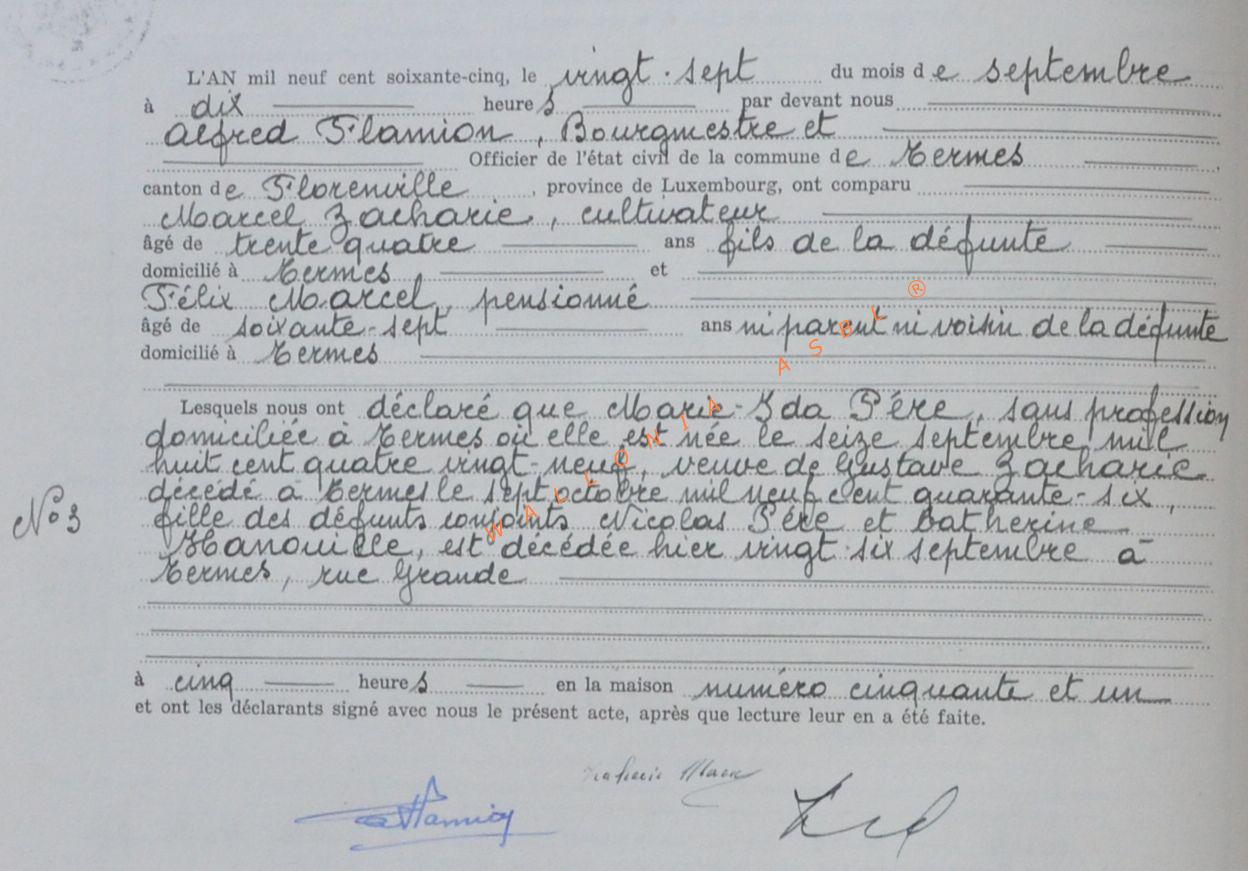 L'AN mil neuf cent soixante-cinq, le vingt-sept du mois de septembre
à dix heures par devant nous
Alfred Flamion, Bourgmestre et
Officier de l'état civil de la commune de Termes
canton de Florenville, province de Luxembourg, ont comparu
Marcel Zacharie, cultivateur
âgé de trente quatre ans fils de la défunte
domicilié à Termes et
Félix Marcel, pensionné
âgé de soixante-sept ans ni parent ni voisin de la défunte
domicilié à Termes
Lesquels nous ont déclaré que Marie-Ida Pére, sans profession
domiciliée à Termes où elle est née le seize septembre mil
huit cent quatre vingt-neuf, veuve de Gustave Zacharie
décédé à Termes le sept octobre mil neuf cent quarante-six,
N°3
fille des défunts conjoints Nicolas Pére et Catherine
Manouille, est décédée hier vingt-six septembre à
Termes, rue Grande
à cinq heures en la maison numéro cinquante et un
et ont les déclarants signé avec nous le présent acte, après que lecture leur en a été faite.
WALLONIA ASBL ®